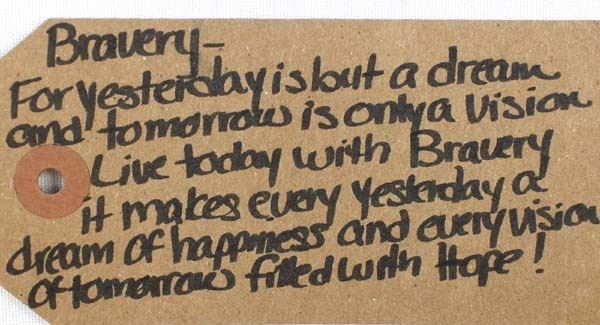 Bravery-
For yesterday is but a dream
and tomorrow is only a vision
Live today with Bravery
it makes every yesterday a
dream of happiness and every vision
of tomorrow filled with Hope!